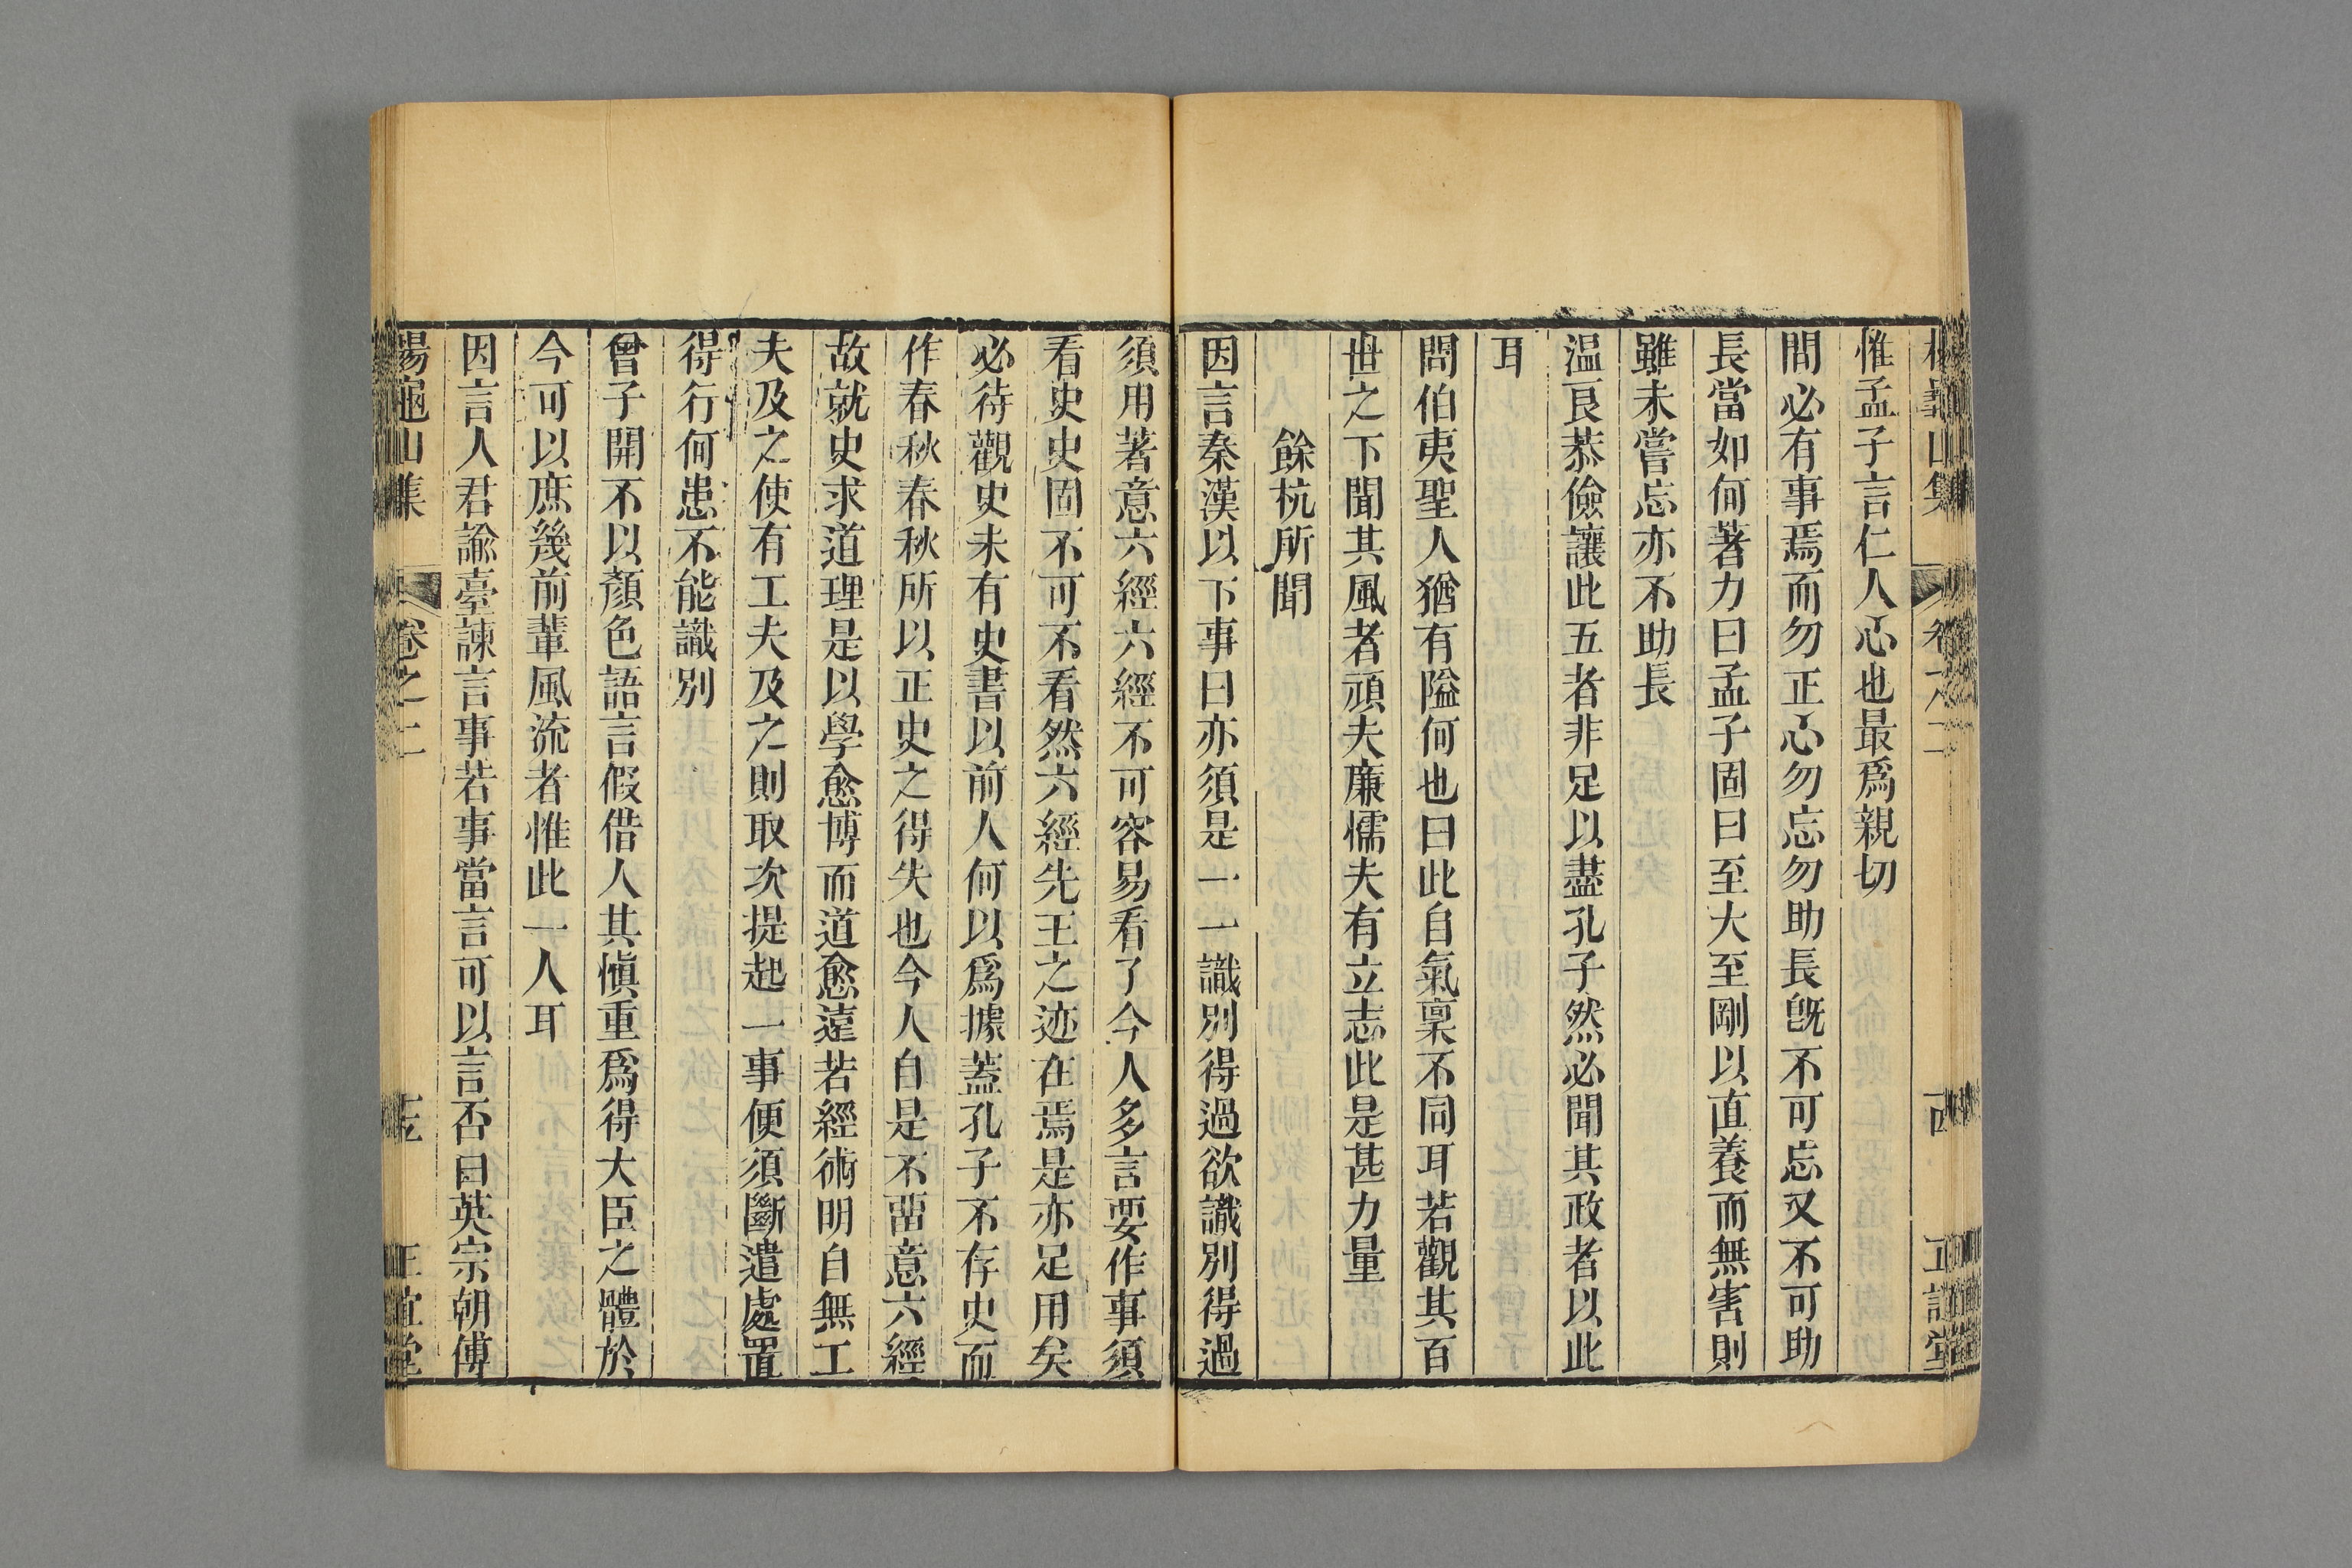 惟孟子言仁人心也最爲親切
問必有事焉而勿正心勿忘勿助長旣不可忘又不可助
長當如何著力曰孟子固曰至大至剛以直養而無害則
雖未嘗忘亦不助長
温良恭儉讓此五者非足以盡孔子然必聞其政者以此
耳
問伯夷聖人猶有隘何也曰此自氣稟不同耳若觀其百
世之下聞其風者頑夫廉懦夫有立志此是甚力量
餘杭所聞
因言秦漢以下事曰亦須是一一識別得過欲識別得過
須用著意六經六經不可容易看了今人多言要作事須
看史史固不可不看然六經先王之迹在焉是亦足用矣
必待觀史未有史書以前人何以爲據蓋孔子不存史而
作春秋春秋所以正史之得失也今人自是不畱意六經
故就史求道理是以學愈博而道愈遠若經術明自無工
夫及之使有工夫及之則取次提起一事便須斷遣處置
得行何患不能識別
曾子開不以顏色語言假借人其愼重爲得大臣之體於
今可以庶幾前輩風流者惟此一人耳
因言人君諭臺諫言事若事當言可以言否曰英宗朝傅
楊龜山集 卷之二 正誼堂